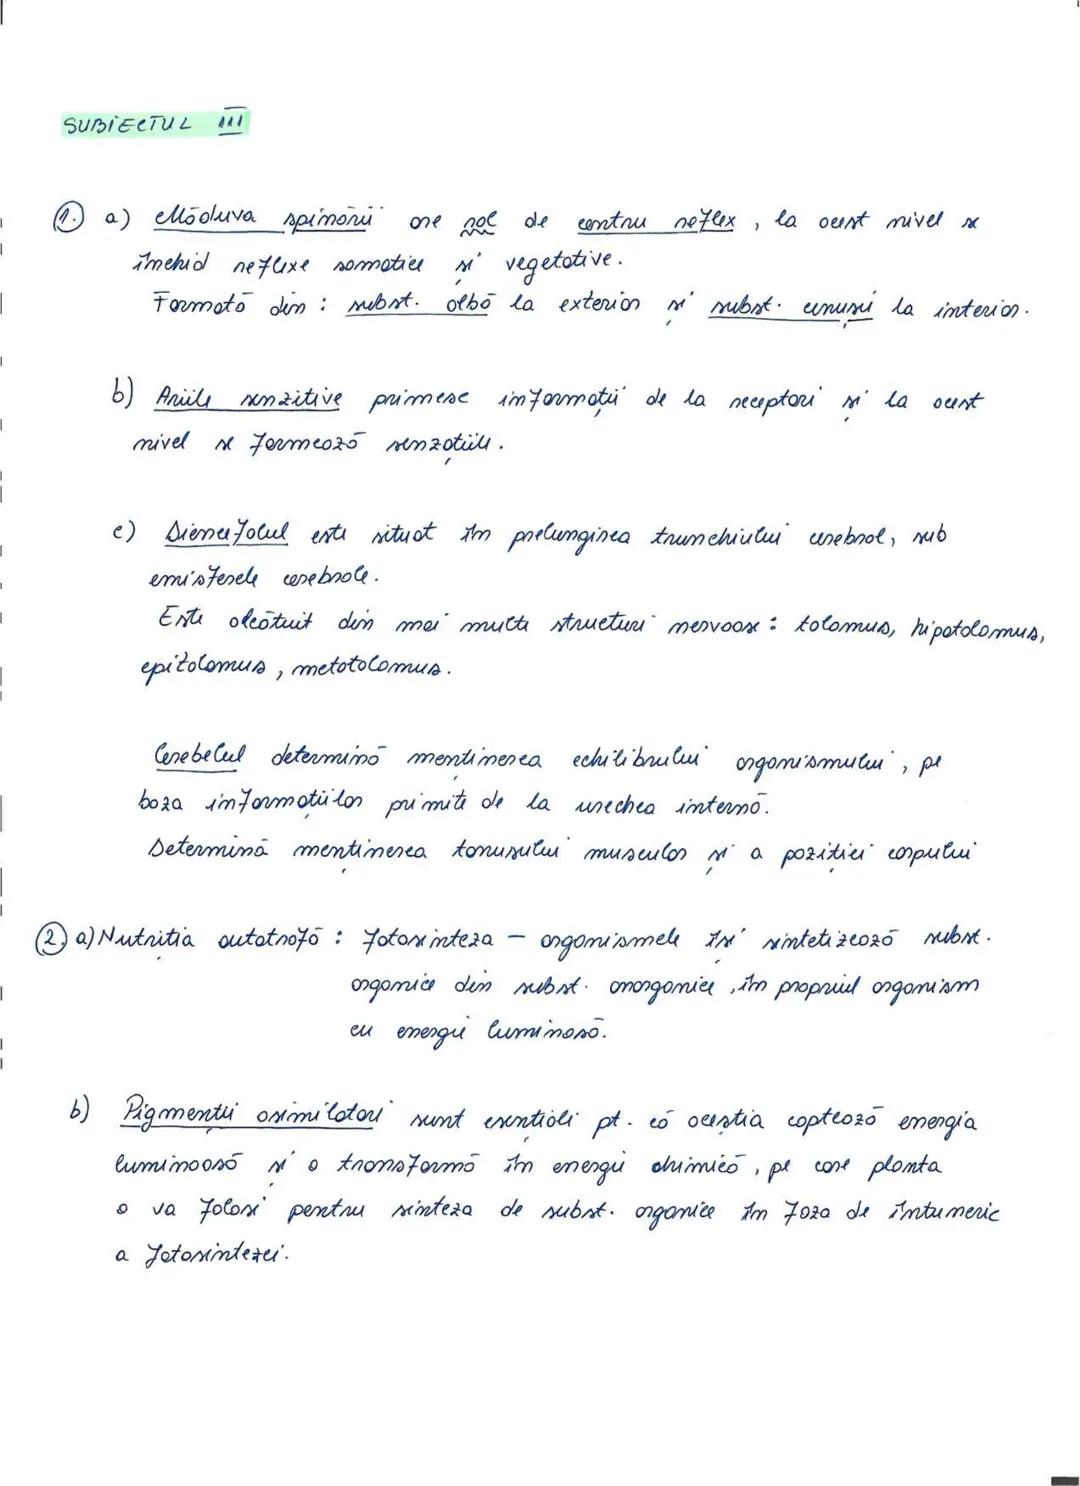 SUBIECTUL III
1. a) Măduva spinării are rol de centru reflex, la acest nivel se
închid reflexe somatice și vegetative.
Formată din: subst. albă la exterior și subst. cenușii la interior.
b) Ariile senzitive primesc informații de la receptori și la acest
nivel se formează senzațiile.
c) Diencefalul este situat în prelungirea trunchiului cerebral, sub
emisferele cerebrale.
Este alcătuit din mai multe structuri nervoase: talamus, hipotalamus,
epitalamus, metatalamus.
Cerebelul determină menținerea echilibrului organismului, pe
baza informațiilor primite de la urechea internă.
Determină menținerea tonusului muscular și a poziției corpului
2. a) Nutriția autotrofă: fotosinteza - organismele își sintetizează subst.
organice din subst. anorganice, în propriul organism
cu energie luminosă.
b) Pigmenții asimilatori sunt esențiali pt. că aceștia captează energia
luminoasă și o transformă în energie chimică, pe care planta
o va folosi pentru sinteza de subst. organice în faza de întuneric
a fotosintezei.